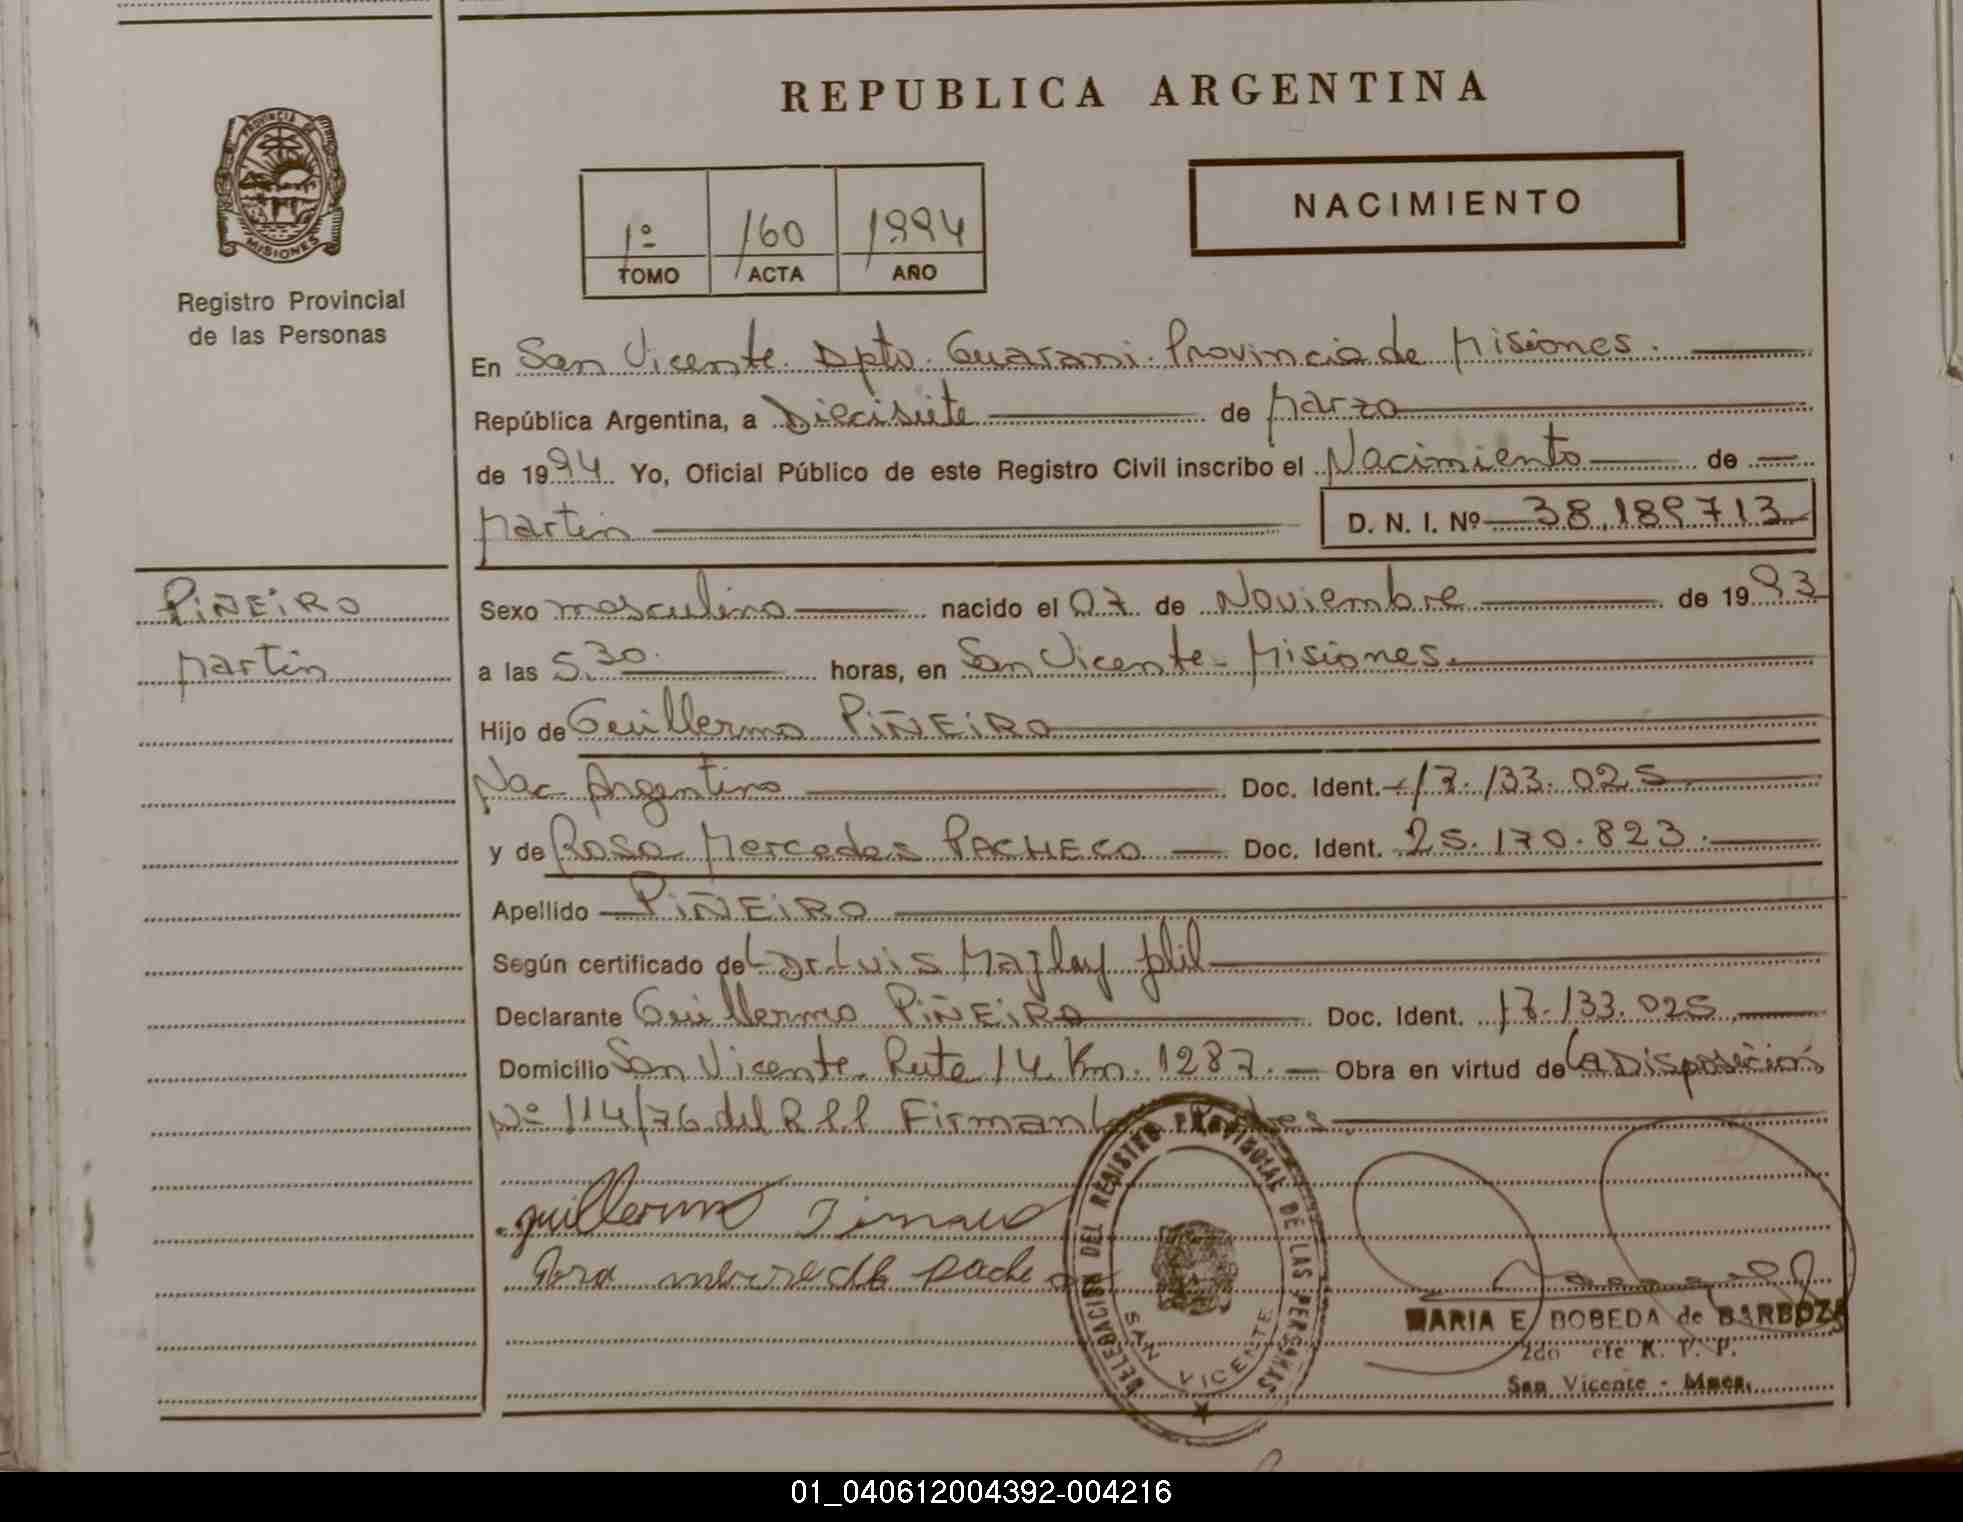 REPUBLICA ARGENTINA
PROVINCIA DE
MISIONES
Registro Provincial
de las Personas
1º 160 1994
TOMO ACTA AÑO
NACIMIENTO
En San Vicente. Dpto. Guarani. Provincia de Misiones.
República Argentina, a Diecisiete de Marzo
de 1994 Yo, Oficial Público de este Registro Civil inscribo el Nacimiento de
Martin D. N. I. Nº 38.189713
PiÑEiRO
Martin
Sexo masculino nacido el 07 de Noviembre de 1993
a las 5.30. horas, en San Vicente - Misiones.
Hijo de Guillermo PiÑEiRO
Nac. Argentino Doc. Ident. 17.133.025
y de Rosa Mercedes PACHECO Doc. Ident. 25.170.823.
Apellido PiÑEiRO
Según certificado del Dr. Luis
Declarante Guillermo PiÑEiRO Doc. Ident. 17.133.025
Domicilio San Vicente. Ruta 14 Km. 1287. Obra en virtud de la Disposición
Nº 114/76 del R.P.P. Firman
guillermo
DELEGACION DEL REGISTRO PROVINCIAL DE LAS PERSONAS
SAN VICENTE
MARIA E. BOBEDA de BARBOZA
2do R. P. P.
San Vicente - Mnes.
01_040612004392-004216